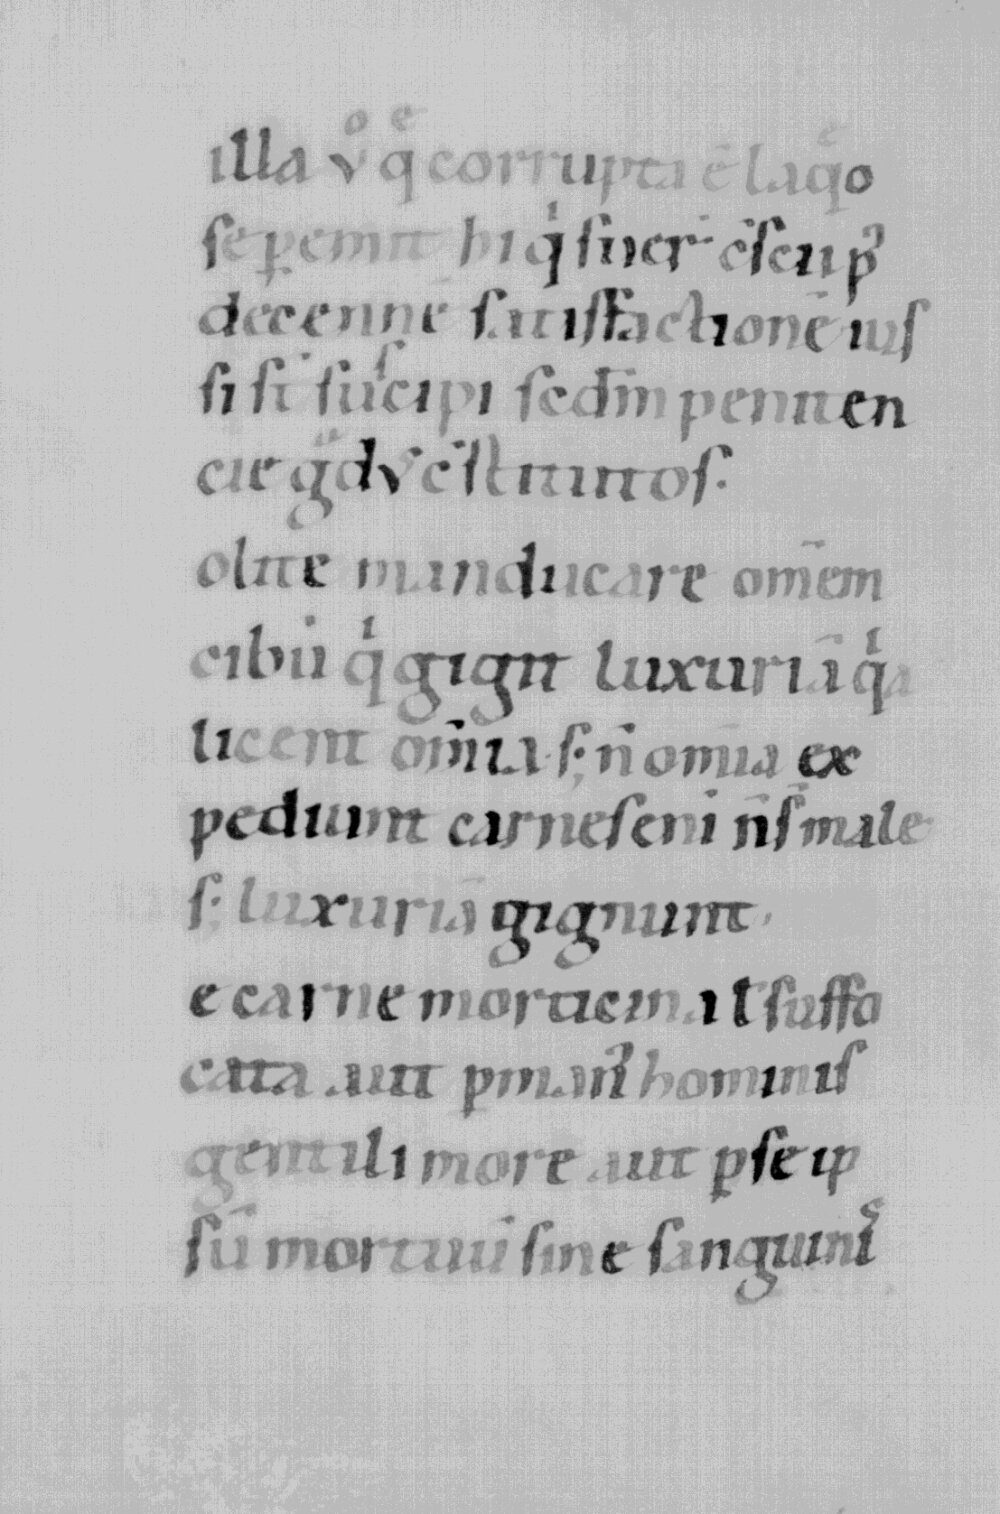 illa vͦ qͤ corrupta ē laq̄o
se ꝑemit hi qͥ sūcr̄ c̄secu pꝰ
decennē satisfactionē ius
si st̄ suˢcipi sed īn peniten
cie gͣdᵛ c̄stitutos.
olite manducare omēm
cibū qͥ gignit luxuriā qͥa
licent om̄ia s; n̄ omīa ex
pediunt carnes eni n̄ s̄ male
s; luxuriā gignunt.
e carne morticina ł suffo
cata aut ꝑ manꝰ hominis
gentili more aut ꝑ se ip
sū mortuū sine sanguiniˢ